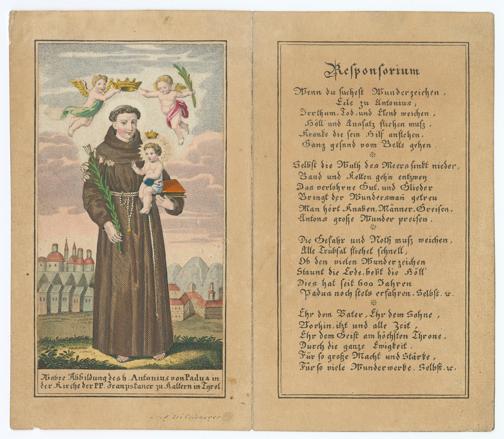 Wahre Abbildung des h. Antonius von Padua in
der Kirche der PP. Franziskaner zu Kaltern in Tyrol.
Responsorium
Wenn du suchest Wunderzeichen,
Eile zu Antonius,
Irrthum, Tod, und Elend weichen,
Höll und Aussatz fliehen muß,
Kranke die sein Hilf anflehen,
Ganz gesund vom Bette gehen
Selbst die Wuth des Meers sinkt nieder,
Band und Ketten gehn entzwey
Das verlohrne Gut, und Glieder
Bringt der Wundersmañ getreu
Man hört Knaben, Männer, Greisen,
Antons große Wunder preisen.
Die Gefahr und Noth muß weichen,
Alle Trübsal fliehet schnell,
Ob den vielen Wunderzeichen
Staunt die Erde, bebt die Höll
Dies hat seit 600 Jahren
Padua noch stets erfahren. Selbst. ꝛc.
Ehr dem Vater, Ehr dem Sohne,
Vorhin, itzt und alle Zeit,
Ehr dem Geist am höchsten Throne,
Durch die ganze Ewigkeit.
Für so große Macht und Stärke,
Für so viele Wunderwerke. Selbst. ꝛc.